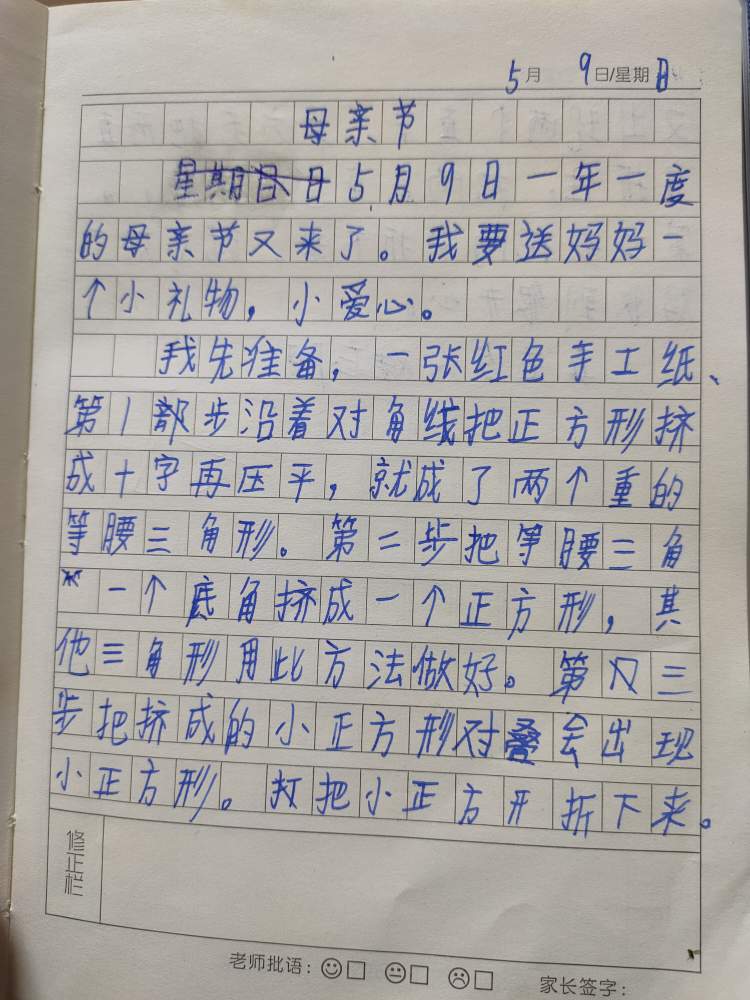 5月 9日/星期日
母亲节
星期日日5月9日一年一度
的母亲节又来了。我要送妈妈一
个小礼物，小爱心。
我先准备，一张红色手工纸、
第1部步沿着对角线把正方形挤
成十字再压平，就成了两个重的
等腰三角形。第二步把等腰三角
一个底角挤成一个正方形，其
他三角形用此方法做好。第又三
步把挤成的小正方形对叠会出现
小正方形。打把小正方开折下来。
修正栏
老师批语：
家长签字：